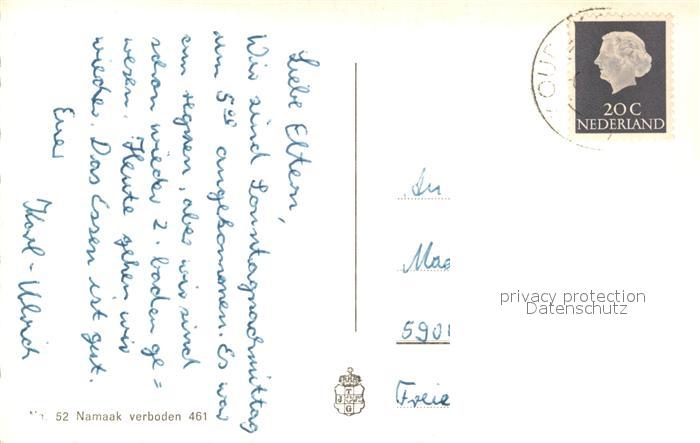 Liebe Eltern,
Wir sind Sonntagnachmittag
um 5 angekommen. Es war
am regnen, aber wir sind
schon wieder 2. baden ge=
wesen. Heute gehen wir
wieder. Das Essen ist gut.
Euer
Karl-Ulrich
52 Namaak verboden 461
20 C
NEDERLAND
An
5901
Freie
privacy protection
Datenschutz